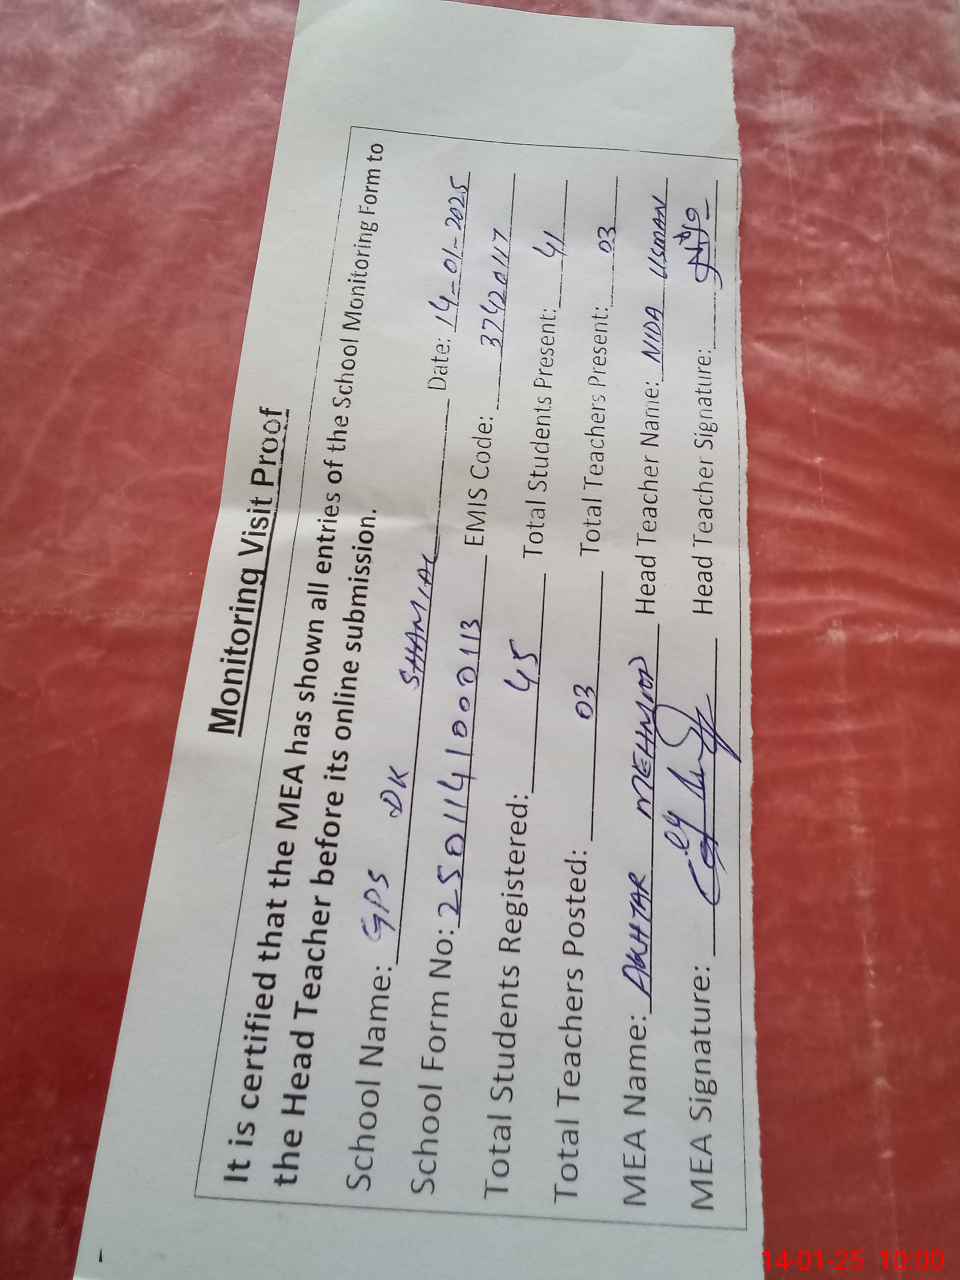 Monitoring Visit Proof
It is certified that the MEA has shown all entries of the School Monitoring Form to
the Head Teacher before its online submission.
School Name: GPS DK SHAMIAL Date: 14-01-2025
School Form No: 2501141000113 EMIS Code: 37420117
Total Students Registered: 45 Total Students Present: 41
Total Teachers Posted: 03 Total Teachers Present: 03
MEA Name: AKHTAR MEHMOOD Head Teacher Name: NIDA USMAN
MEA Signature: Head Teacher Signature:
14-01-25 10:00